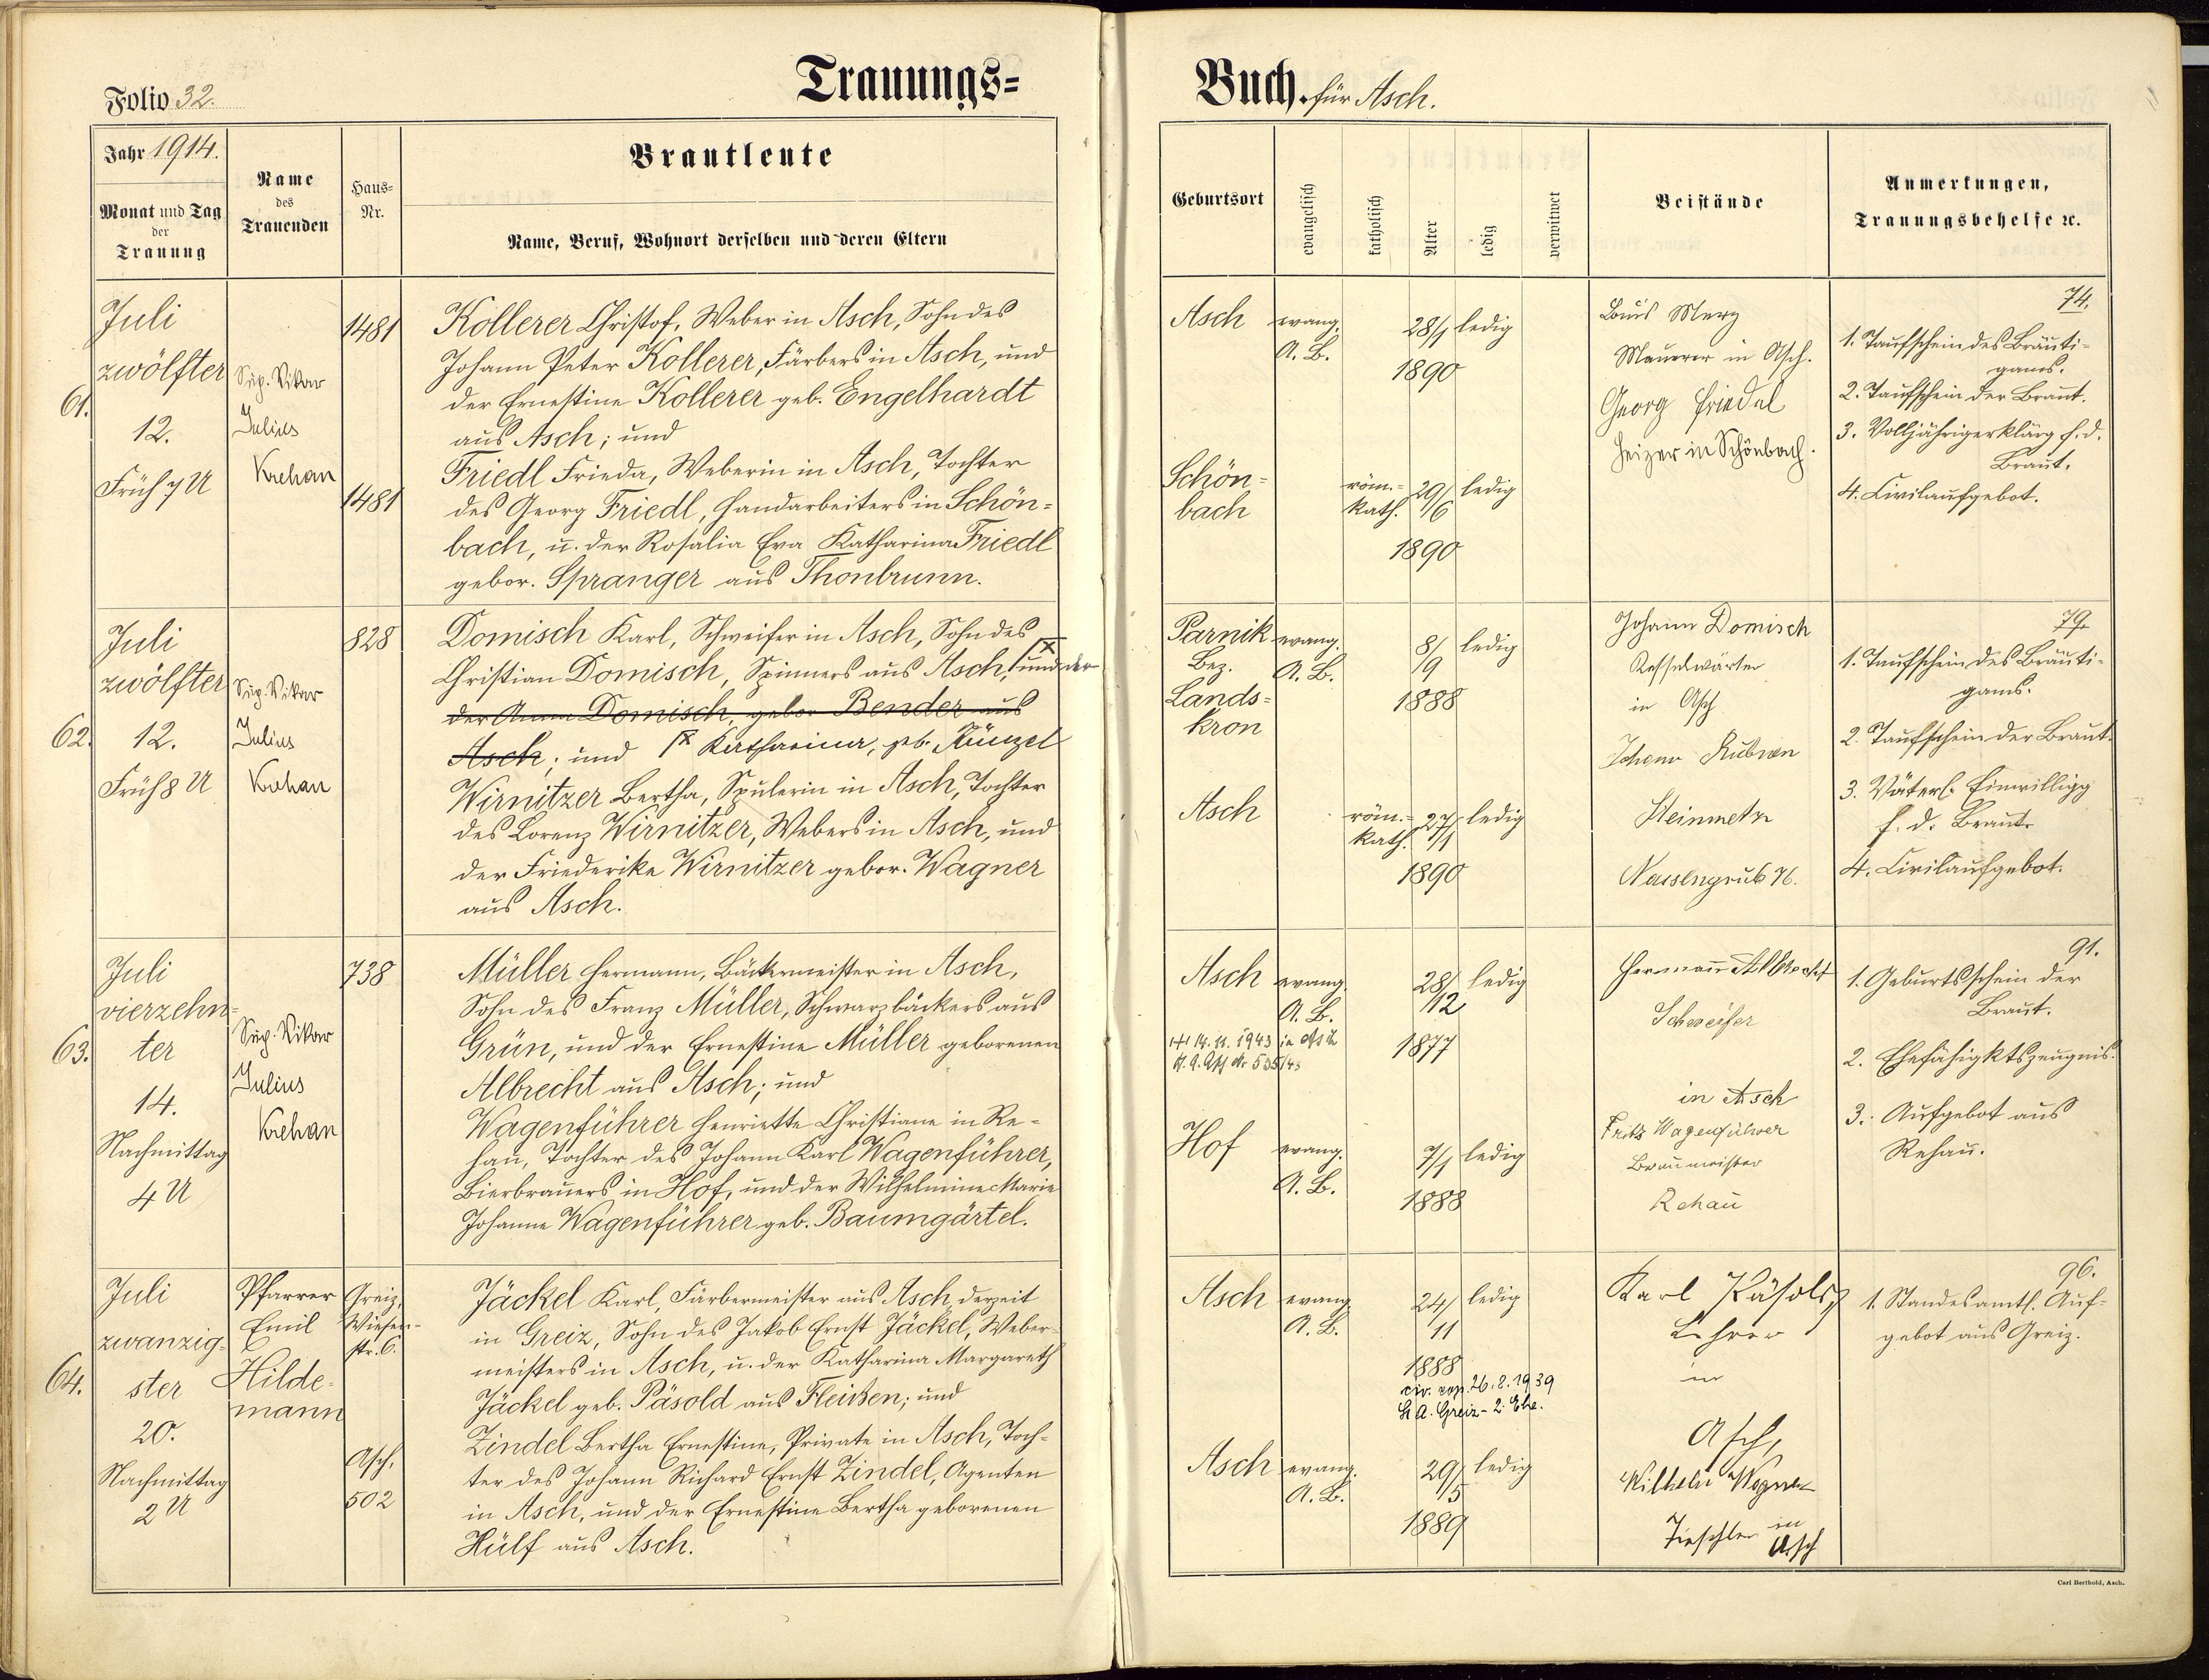 Folio 32.
Trauungs=
Jahr 1914.
Monat und Tag
der
Trauung
Name
des
Trauenden
Haus=
Nr.
Brautleute
Name, Beruf, Wohnort derselben und deren Eltern
61.
Juli
zwölfter
12.
Früh 7 U
Sup. Vikar
Julius
Krehan
1481
1481
Kollerer Christof, Weber in Asch, Sohn des
Johann Peter Kollerer, Färbers in Asch, und
der Ernestine Kollerer geb. Engelhardt
aus Asch; und
Friedl Frieda, Weberin in Asch, Tochter
des Georg Friedl, Handarbeiters in Schön=
bach, u. der Rosalia Eva Katharina Friedl
gebor. Spranger aus Thonbrunn.
62.
Juli
zwölfter
12.
Früh 8 U
Sup. Vikar
Julius
Krehan
828
Domisch Karl, Schweifer in Asch, Sohn des
Christian Domisch, Spinners aus Asch, und der
der Anna Domisch, gebor Bender aus
Asch; und Katharina, geb. Künzel
Wirnitzer Bertha, Spulerin in Asch, Tochter
des Lorenz Wirnitzer, Webers in Asch, und
der Friederike Wirnitzer gebor. Wagner
aus Asch.
63.
Juli
vierzehn=
ter
14.
Nachmittag
4 U
Sup. Vikar
Julius
Krehan
738
Müller Hermann, Bäckermeister in Asch,
Sohn des Franz Müller, Schwarzbäckers aus
Grün, und der Ernestine Müller geborenen
Albrecht aus Asch; und
Wagenführer Henriette Christiane in Re=
hau, Tochter des Johann Karl Wagenführer,
Bierbrauers in Hof, und der Wilhelmine Marie
Johanne Wagenführer geb. Baumgärtel.
64.
Juli
zwanzig=
ster
20.
Nachmittag
2 U
Pfarrer
Emil
Hilde=
mann
Greiz,
Wiesen=
str. 6.
Asch,
502
Jäckel Karl, Färbermeister aus Asch, derzeit
in Greiz, Sohn des Jakob Ernst Jäckel, Weber=
meisters in Asch, u. der Katharina Margareth
Jäckel geb. Päsold aus Fleißen; und
Zindel Bertha Ernestine, Private in Asch, Toch=
ter des Johann Richard Ernst Zindel, Agenten
in Asch, und der Ernestine Bertha geborenen
Hülf aus Asch.
Buch. für Asch.
Geburtsort
evangelisch
katholisch
Alter
ledig
verwitwet
Beistände
Anmerkungen,
Trauungsbehelfe ꝛc.
Asch evang. 28/1 ledig
A. B.
1890
Schön= röm.= 29/ ledig
bach kath. 6
1890
Louis Merz
Maurer in Asch.
Georg Friedel
Heizer in Schönbach.
74.
1. Taufschein des Bräuti=
gams.
2. Taufschein der Braut.
3. Volljährigerklärg f. d.
Braut.
4. Civilaufgebot.
Parnik evang. 8/ ledig
Bez. A. B. 9
Lands= 1888
kron
Asch röm.= 27/ ledig
kath. 1
1890
Johann Domisch
Kesselwärter
in Asch
Johann
Steinmetz
Nassengrub 76.
79.
1. Taufschein des Bräuti=
gams.
2. Taufschein der Braut.
3. Väterl. Einwilligg
f. d. Braut.
4. Civilaufgebot.
Asch evang. 28/ ledig
A. B. 12
1877
14. 11. 1943 in Asch
Hof evang. 7/1 ledig
A. B.
1888
Hermann Albrecht
Schweifer
in Asch
Fritz Wagenführer
Braumeister
Rehau
91.
1. Geburtsschein der
Braut.
2. Ehefähigktszeugnis.
3. Aufgebot aus
Rehau.
Asch evang. 24/ ledig
A. B. 11
1888
26. 8. 1939
St. A. Greiz - 2. Ehe.
Asch evang. 29/ ledig
A. B. 5
1889
Karl Päsold
Lehrer
in
Asch,
Wilhelm Wagner
Tischler in
Asch
96.
1. Standesamtl. Auf=
gebot aus Greiz.
Carl Berthold, Asch.